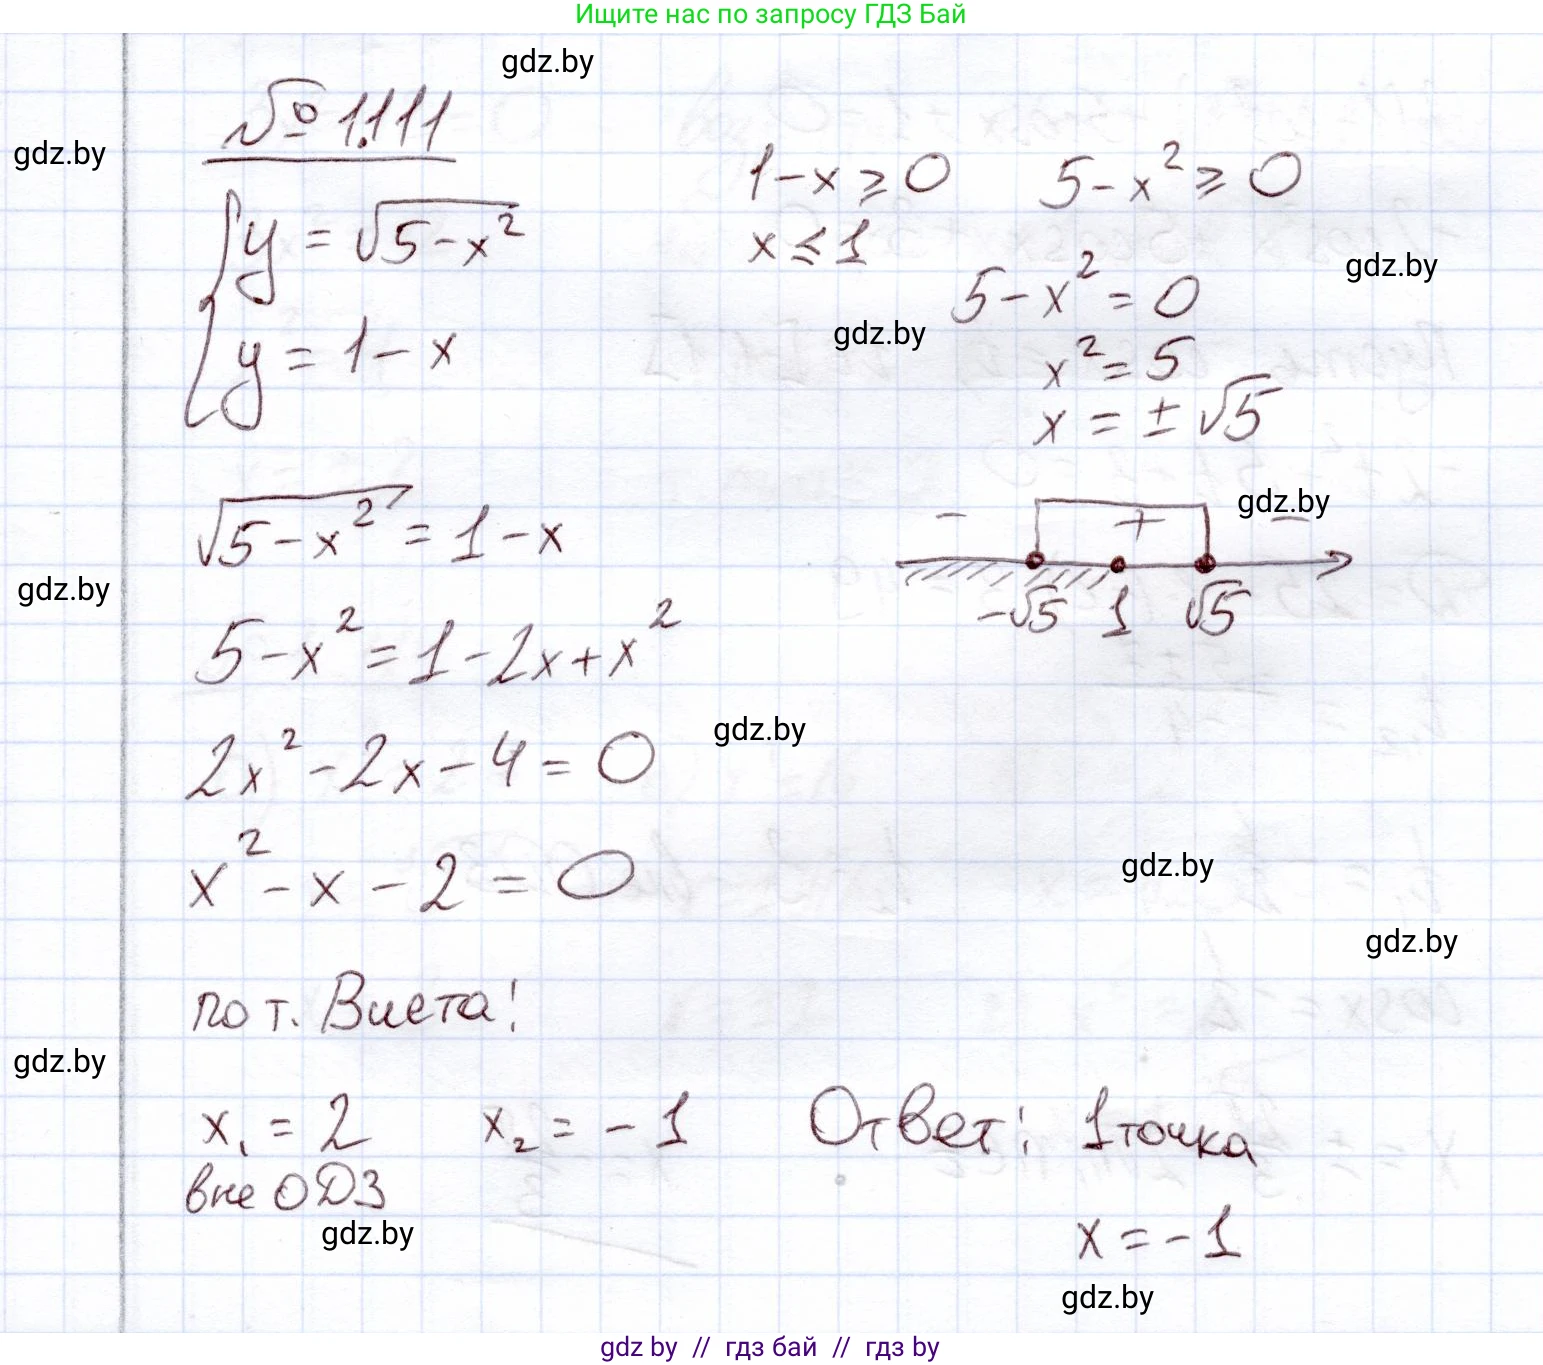 Ищите нас по запросу ГДЗ Бай
gdz.by
gdz.by
№ 1.111
y = √(5 - x²)
y = 1 - x
1 - x ≥ 0
x ≤ 1
5 - x² ≥ 0
gdz.by
5 - x² = 0
gdz.by
x² = 5
x = ± √5
√(5 - x²) = 1 - x
gdz.by
- + -
-√5 1 √5
gdz.by
5 - x² = 1 - 2x + x²
gdz.by
2x² - 2x - 4 = 0
x² - x - 2 = 0
gdz.by
gdz.by
по т. Виета:
gdz.by
x₁ = 2 x₂ = - 1
вне ОДЗ
gdz.by
Ответ: 1 точка
x = - 1
gdz.by
gdz by // гдз бай // гдз by